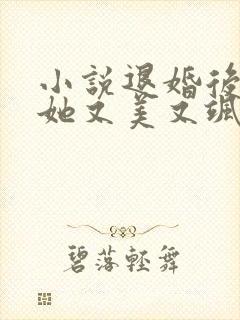 小說退婚後
她又美又颯
碧落輕舞